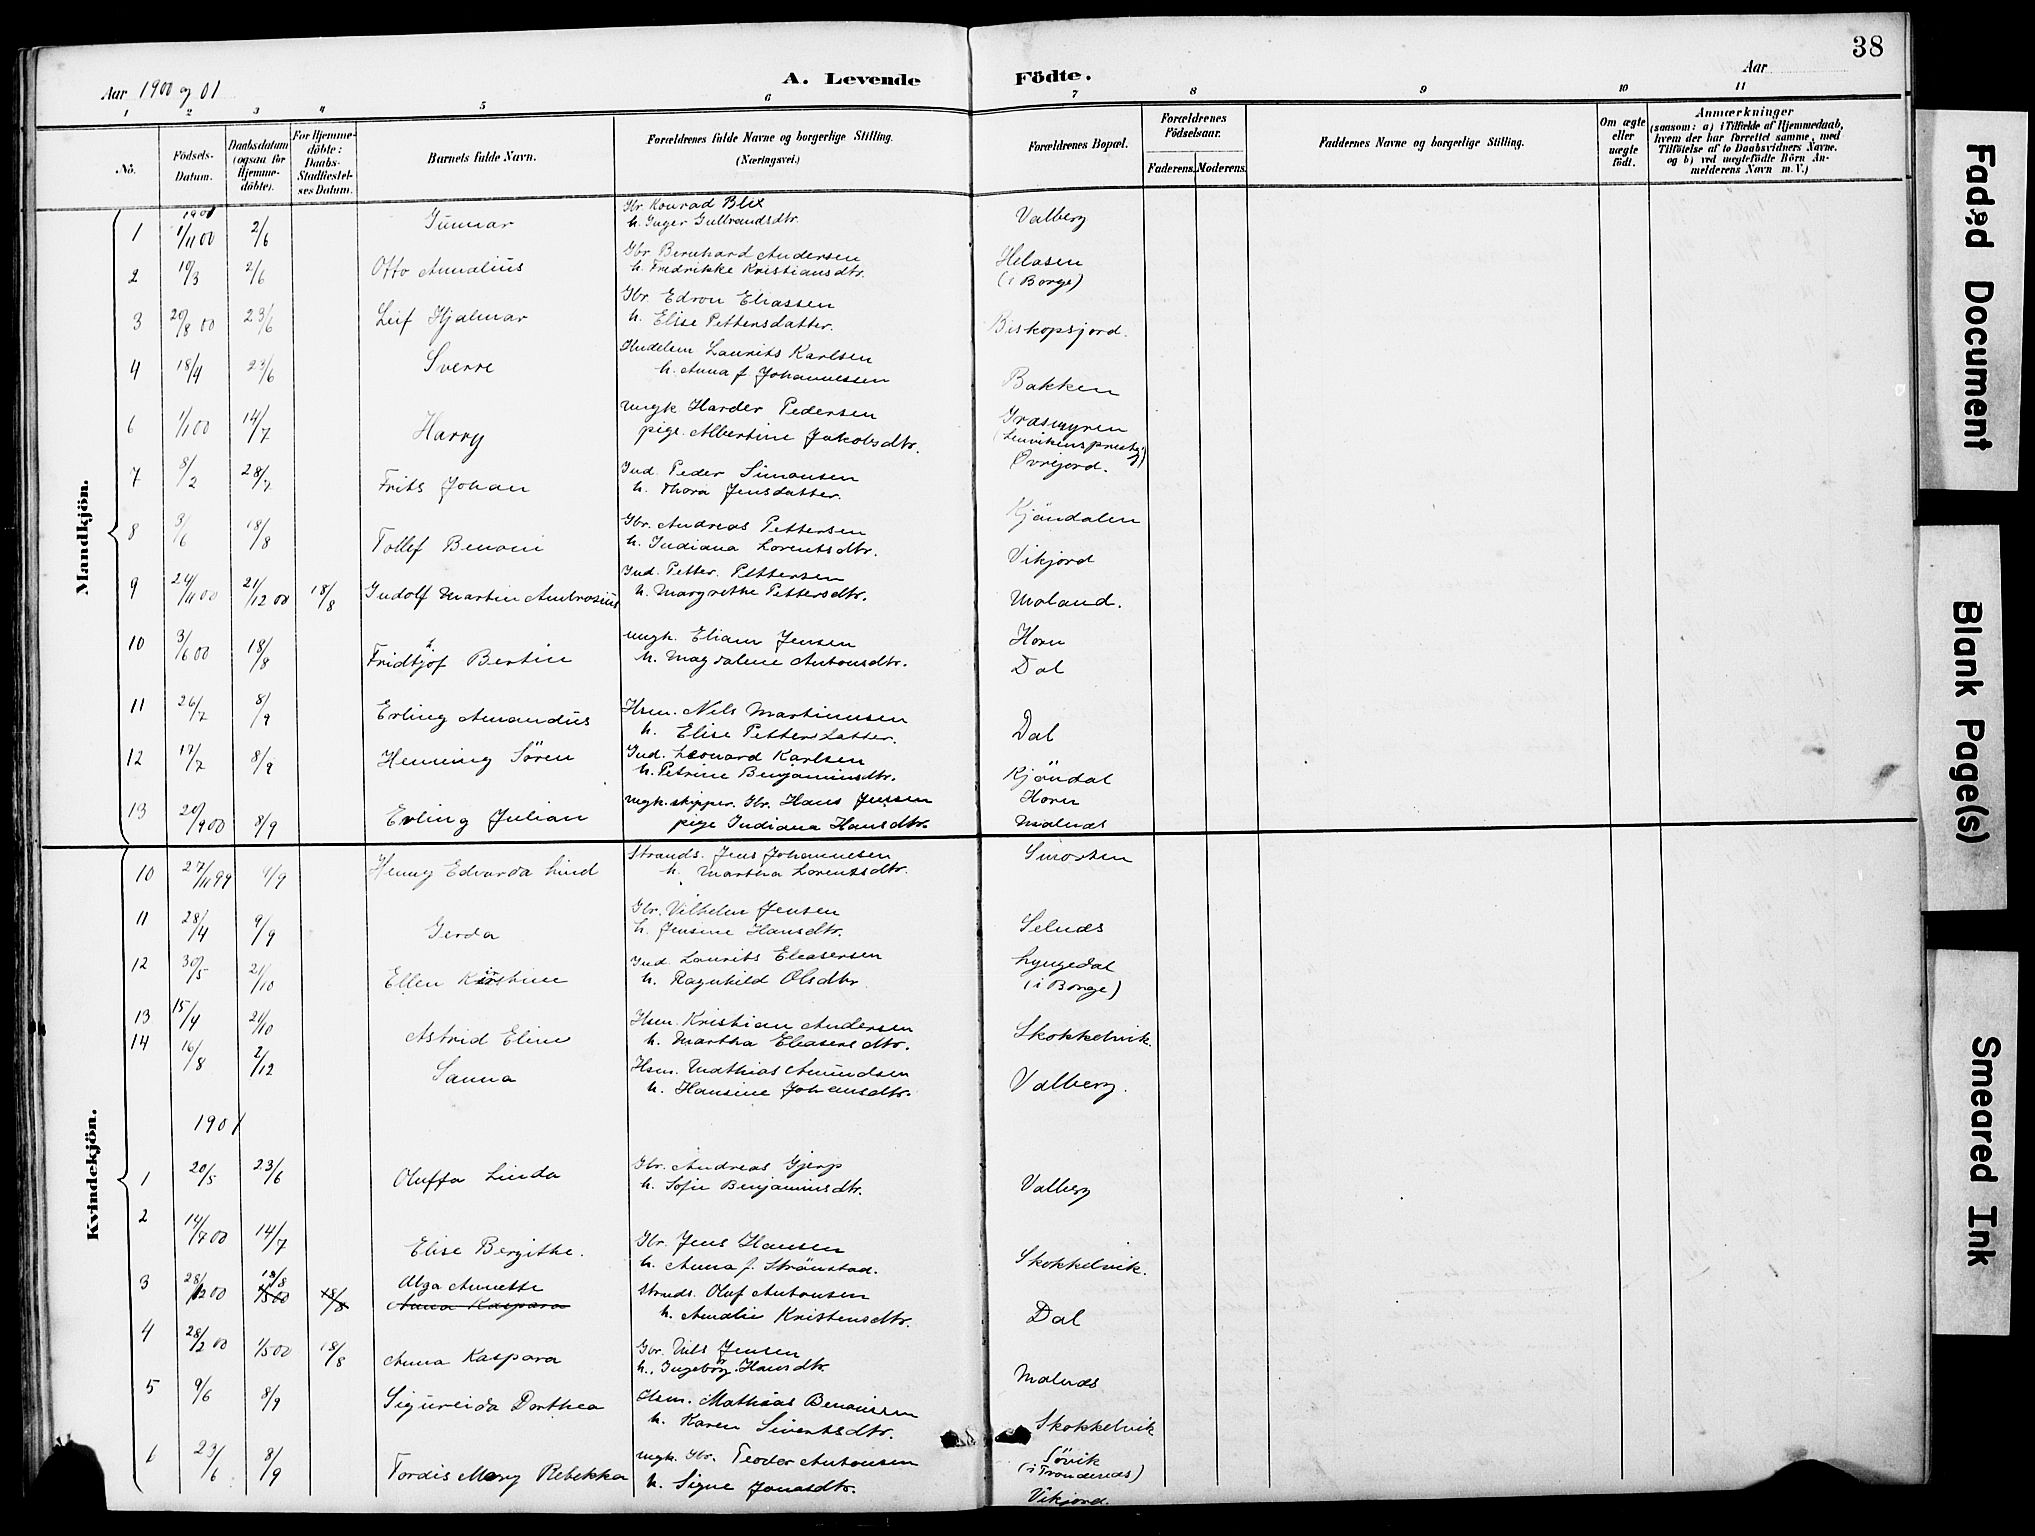 38
Aar 1900 og 01
A. Levende Födte.
Aar
1 2 3 4 5 6 7 8 9 10 11
No.
Födsels-Datum.
Daabsdatum (ogsaa for Hjemmedöbte).
For Hjemmedöbte: Daabs-Stadfæstelses Datum.
Barnets fulde Navn.
Forældrenes fulde Navne og borgerlige Stilling. (Næringsvei.)
Forældrenes Bopæl.
Forældrenes Födselsaar.
Faderens. Moderens.
Faddernes Navne og borgerlige Stilling.
Om ægte eller uægte födt.
Anmærkninger (saasom: a) i Tilfælde af Hjemmedaab, hvem der har forrettet samme, med Tilföielse af to Daabsvidners Navne, og b) ved uægtefödte Börn Anmelderens Navn m. V.)
Mandkjön.
1901
1 1/11 00 2/6 Gunnar Gbr Konrad Blix Valberg
h. Inger Gulbrandsdtr.
2 10/3 2/6 Otto Annalius Gbr Bernhard Andersen Helosen
h. Fredrikke Kristiansdtr. (i Borge)
3 20/8 00 23/6 Leif Hjalmar Gbr. Edvon Eliassen
h. Elise Pettersdatter. Biskopsjord.
4 18/4 23/6 Sverre Laurits Karlsen
h. Anna f. Johannessen Bakken
6 1/1 00 14/7 Harry Ungk Harder Pedersen Græsmyren
pige. Albertine Jakobsdtr.
7 8/2 28/7 Frits Johan Ind. Peder Simonsen Øvrejord.
h. Thora Jensdatter.
8 3/6 18/8 Tollef Benoni Gbr. Andreas Pettersen Kjöndalen
h. Indiana Lorentsdtr. Vikjord
9 24/11 00 21/12 00 18/8 Indolf Martin Ambrosius Ind. Petter Pettersen
h. Margrethe Pettersdtr. Moland.
10 3/6 00 18/8 Fridtjof Bertin Ungk. Eliam Jensen Horn
h. Magdalene Antonsdtr. Dal
11 26/7 8/9 Erling Amandus Hsm. Nils Martinusen
h. Elise Pettersdatter. Dal
12 17/7 8/9 Henning Sören Ind. Leonard Karlsen
h. Petrine Benjaminsdtr. Kjöndal
13 20/9 00 8/9 Erling Julian Ungk. skipper. Gbr. Hans Jensen Horn
pige Indiana Hansdtr. Malnæs
Kvindekjön.
10 27/11 99 9/9 Henny Edvarda Lind Strands. Jens Johannesen Smorten
h. Martha Lorentsdtr.
11 28/4 9/9 Gerda Gbr. Vilhelm Jensen
h. Jensine Hansdtr. Selnæs
12 30/5 21/10 Ellen Kirstine Ind. Laurits Eleasersen Lyngedal
h. Ragnhild Olsdtr (i Borge)
13 15/4 21/10 Astrid Eline Hsm. Kristian Andersen Skokkelvik.
h. Martha Eleasersdtr.
14 16/8 2/12 Sanna Hsm. Mathias Amundsen
h. Hansine Johansdtr. Valberg.
1901
1 20/5 23/6 Oluffa Linda Gbr. Andreas Gjerp
h. Sofie Benjaminsdtr. Valberg
2 14/7 00 14/7 Elise Bergithe. Gbr. Jens Hansen
h. Anna f. Strönstad. Skokkelvik.
3 28/12 00 18/8 1/5 00 18/8 Alga Annette Strands. Oluf Antonsen
Anna Kaspara h. Amalie Kristensdtr. Dal
4 28/2 00 1/5 00 18/8 Anna Kaspara Gbr. Nils Jensen
h. Ingeborg Hansdtr. Malnæs
5 9/6 8/9 Sigureida Dorthea Hsm. Mathias Benonisen
h. Karen Sivertsdtr. Skokkelvik
6 23/6 8/9 Tordis Mary Rebekka Ungk. Gbr. Teodor Antonsen Sövik
(i Trondenes)
h. Signe Jonasdtr. Vikjord.
Faded Document
Blank Page(s)
Smeared Ink